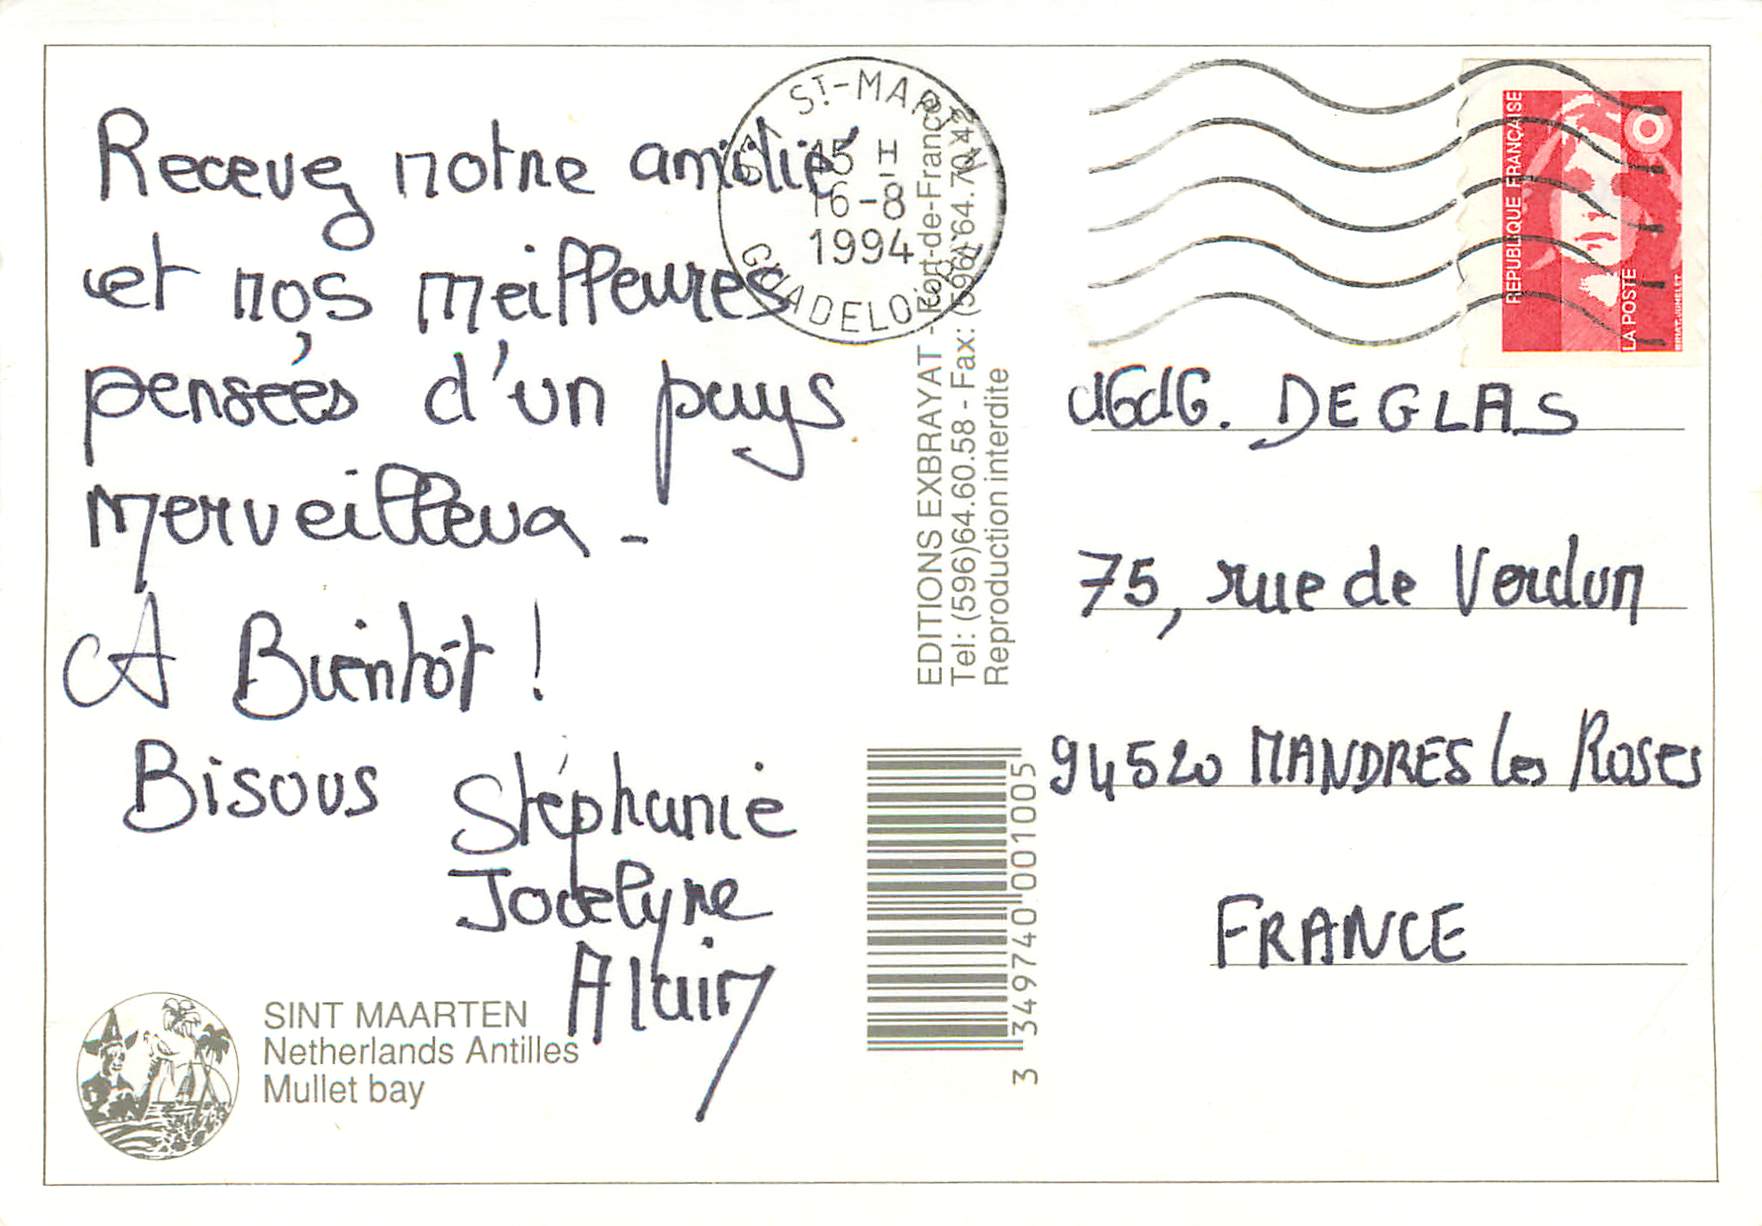 Recevez notre amitié
et nos meilleures
pensées d'un pays
merveilleux -
A Bientôt !
Bisous Stéphanie
Jocelyne
Alain
SINT MAARTEN
Netherlands Antilles
Mullet bay
ST-MARTIN
15 H
16-8
1994
GUADELOUPE
EDITIONS EXBRAYAT - Fort-de-France
Tel: (596)64.60.58 - Fax: (596) 64.70.42
Reproduction interdite
3 349740 001005
REPUBLIQUE FRANÇAISE
LA POSTE
DEGLAS
75, rue de Verdun
94520 MANDRES les Roses
FRANCE